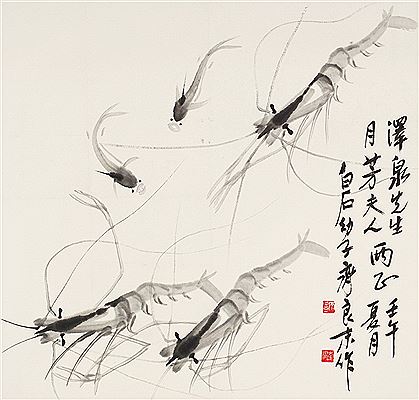 澤泉先生
月芳夫人两正 壬午夏月
白石幼子齊良末作